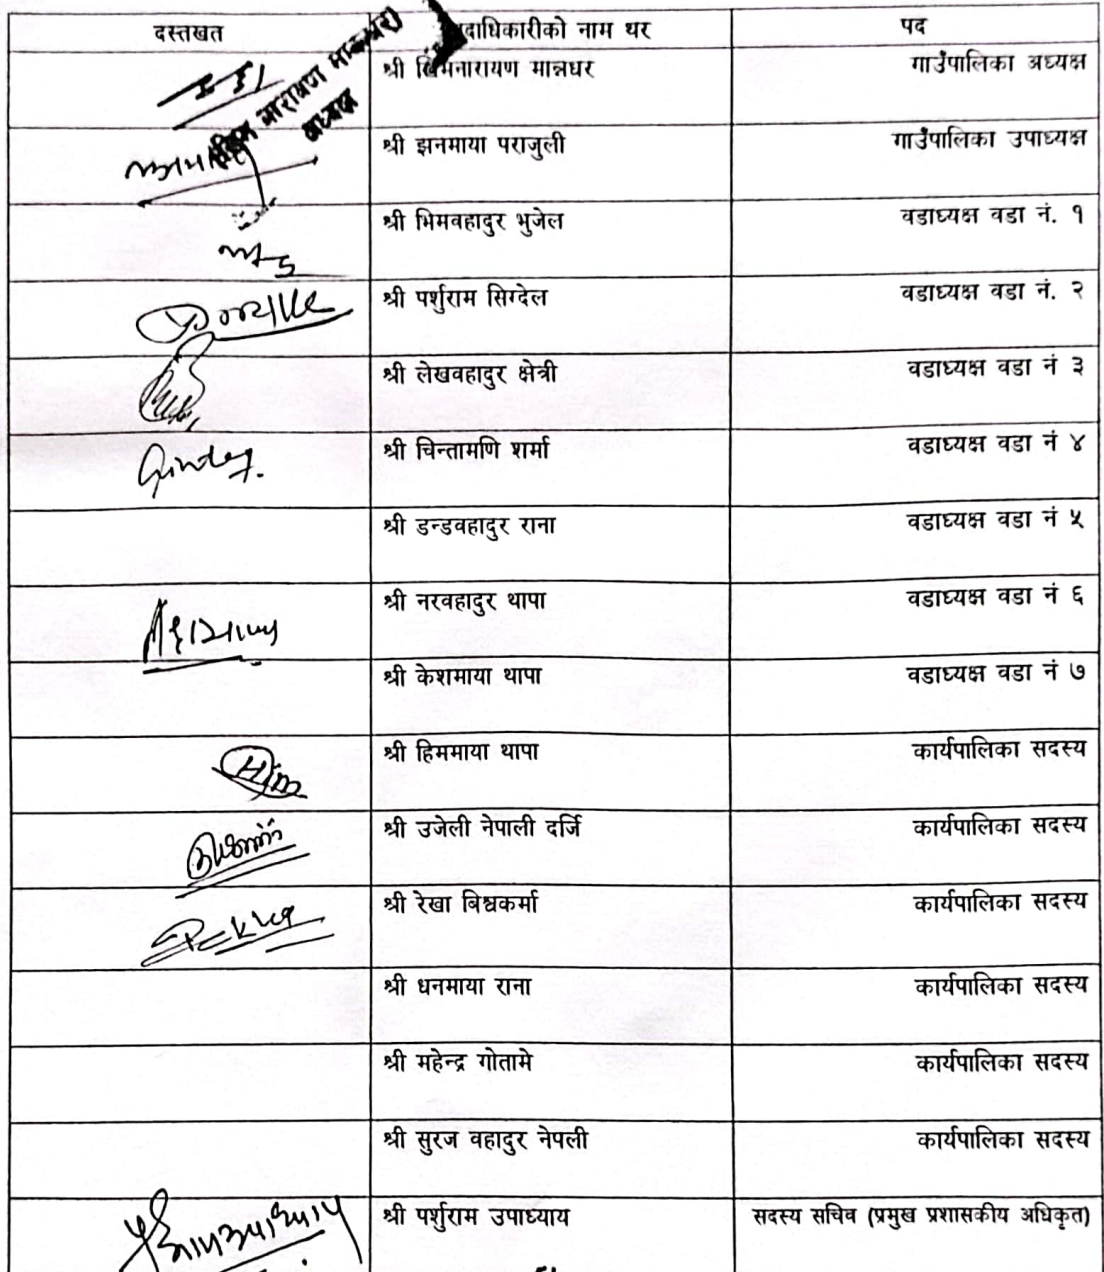 दस्तखत	पदाधिकारीको नाम थर	पद
श्री खिमनारायण मान्नधर	गाउँपालिका अध्यक्ष
नारायण
अध्यक्ष
श्री झनमाया पराजुली	गाउँपालिका उपाध्यक्ष
श्री भिमवहादुर भुजेल	वडाध्यक्ष वडा नं. १
श्री पर्शुराम सिग्देल	वडाध्यक्ष वडा नं. २
श्री लेखवहादुर क्षेत्री	वडाध्यक्ष वडा नं ३
श्री चिन्तामणि शर्मा	वडाध्यक्ष वडा नं ४
श्री डन्डवहादुर राना	वडाध्यक्ष वडा नं ५
श्री नरवहादुर थापा	वडाध्यक्ष वडा नं ६
श्री केशमाया थापा	वडाध्यक्ष वडा नं ७
श्री हिममाया थापा	कार्यपालिका सदस्य
श्री उजेली नेपाली दर्जि	कार्यपालिका सदस्य
श्री रेखा बिश्वकर्मा	कार्यपालिका सदस्य
श्री धनमाया राना	कार्यपालिका सदस्य
श्री महेन्द्र गोतामे	कार्यपालिका सदस्य
श्री सुरज वहादुर नेपली	कार्यपालिका सदस्य
श्री पर्शुराम उपाध्याय	सदस्य सचिव (प्रमुख प्रशासकीय अधिकृत)